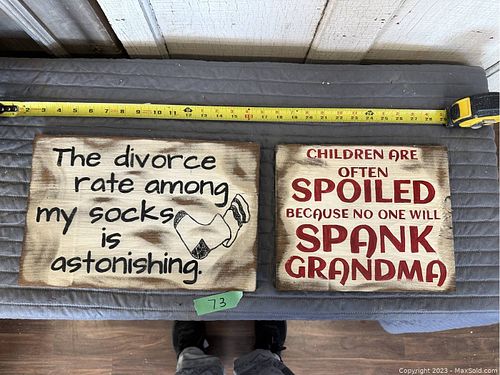 The divorce
rate among
my socks
is
astonishing.
CHILDREN ARE
OFTEN
SPOILED
BECAUSE NO ONE WILL
SPANK
GRANDMA
73
Copyright 2023 - MaxSold.com